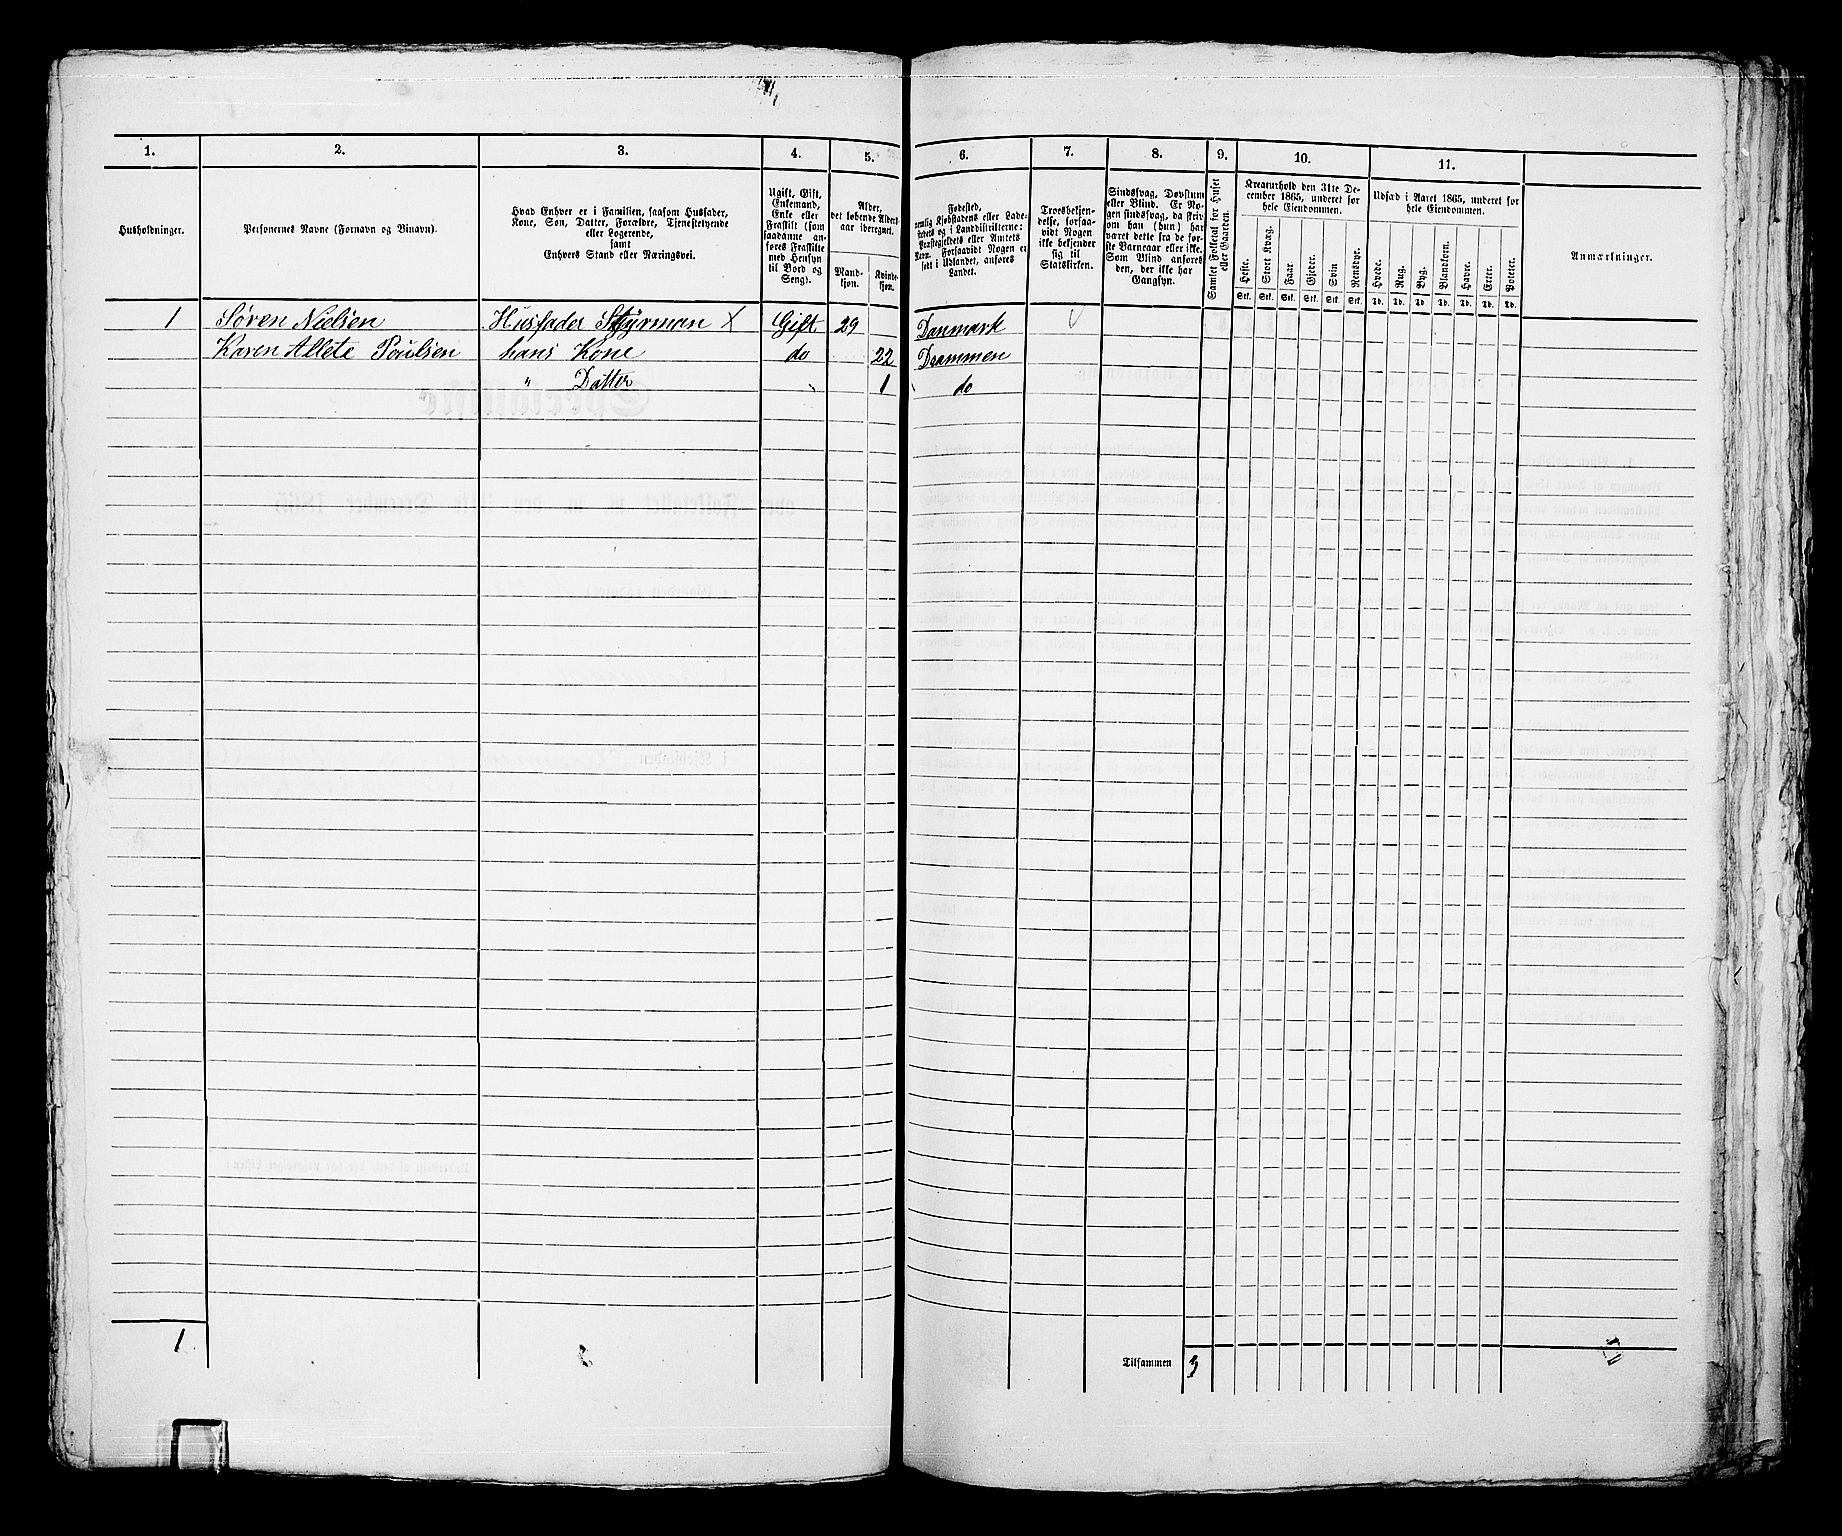 1. 2. 3. 4. 5. 6. 7. 8. 9. 10. 11.
Husholdninger.
Personernes Navne (Fornavn og Binavn).
Hvad Enhver er i Familien, saasom Husfader,
Kone, Søn, Datter, Forældre, Tjenestetyende
eller Logerende,
samt
Enhvers Stand eller Næringsvei.
Ugift, Gift,
Enkemand,
Enke eller
Fraskilt (som
saadanne an-
føres Fraskilte
med Hensyn
til Bord og
Seng).
Alder,
det løbende Alders-
aar iberegnet.
Mand-
kjøn.
Kvinde-
kjøn.
Fødested,
nemlig Kjøbstadens eller Lade-
stedets og i Landdistrikterne:
Præstegjeldets eller Amtets
Navn. Forsaavidt Nogen er
født i Udlandet, anføres
Landet.
Troesbekjen-
delse, forsaa-
vidt Nogen
ikke bekjender
sig til
Statskirken.
Sindssvag, Døvstum
eller Blind. Er No-
gen sindssvag, da skriv
om han (hun) har
været dette fra de før-
ste Barneaar eller ikke.
Som Blind anføres
den, der ikke har
Gangsyn.
Samlet Folketal for Huset
eller Gaarden.
Kreaturhold den 31te De-
cember 1865, underet for
hele Eiendommen.
Heste. Stort Kvæg. Faar. Gjeder. Svin Rensdyr.
Stk. Stk. Stk. Stk. Stk. Stk.
Udsæd i Aaret 1865, underet for
hele Eiendommen.
Hvede. Rug. Byg. Blandkorn. Havre. Erter. Poteter.
Td. Td. Td. Td. Td. Td. Td.
Anmærkninger.
1 Søren Nielsen Husfader Styrman X Gift 29 Danmark
Karen Allete Poulsen hans Kone do 22 Drammen
" Datter 1 do
1
Tilsammen 3